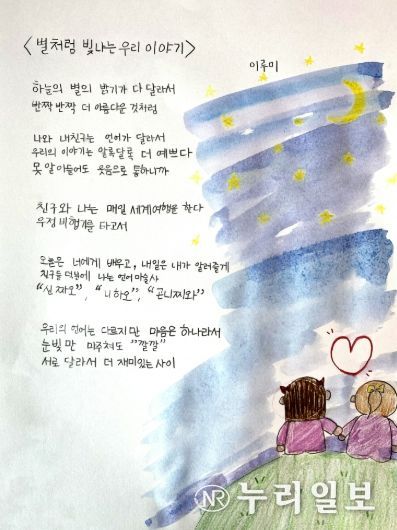 <별처럼 빛나는 우리 이야기>
이루미
하늘의 별의 밝기가 다 달라서
반짝 반짝 더 아름다운 것처럼
나와 내친구는 언어가 달라서
우리의 이야기는 알록달록 더 예쁘다
못 알아들어도 웃음으로 통하니까
친구와 나는 매일 세계여행을 한다
우정 비행기를 타고서
오늘은 너에게 배우고, 내일은 내가 알려줄게
친구들 덕분에 나는 언어마술사
"신짜오", "니하오", "곤니찌와"
우리의 언어는 다르지만 마음은 하나라서
눈빛만 마주쳐도 "깔깔"
서로 달라서 더 재미있는 사이
NR 누리일보